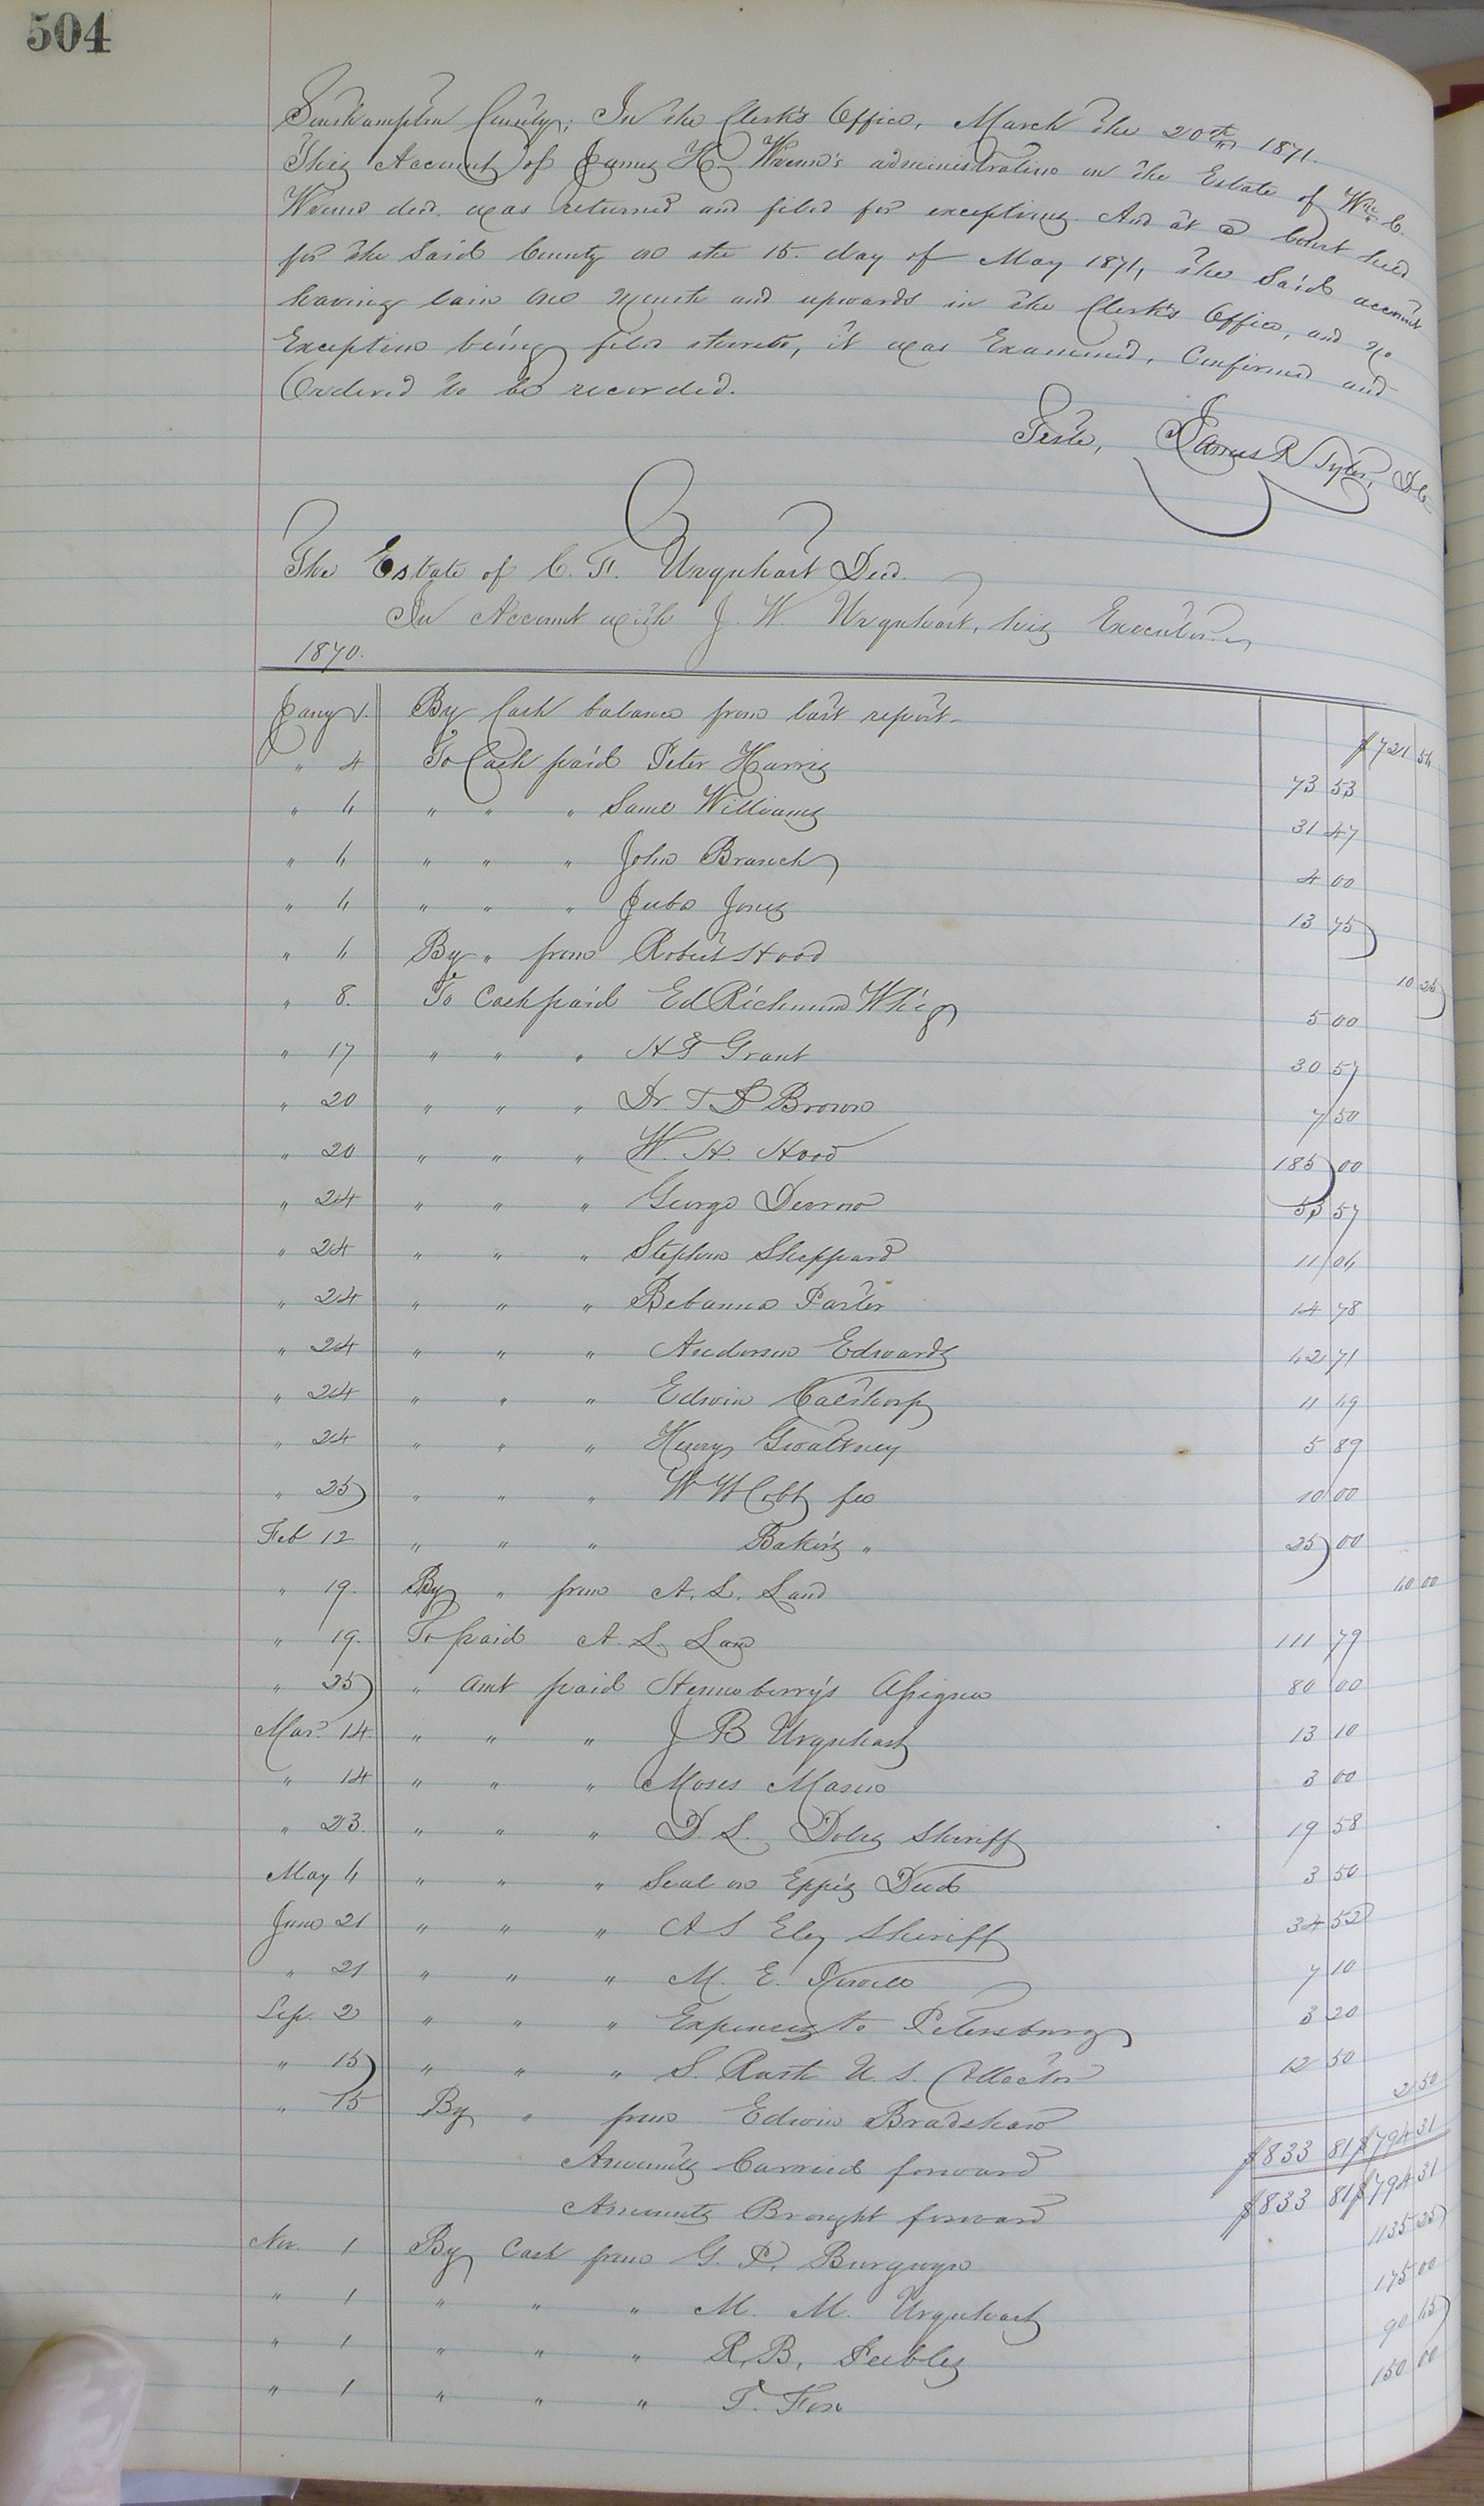 504
Southampton County; In the Clerk's Office, March the 20th 1871.
This Account of James H. Wrenn's administration on the Estate of Wm. C.
Wrenn decd. was returned and filed for exceptions. And at a Court held
for the said County on the 15. day of May 1871, the said account
having lain one month and upwards in the Clerk's Office, and no
Exception being filed thereto, it was Examined, Confirmed and
Ordered to be recorded.
Teste, James R Tyler, D.C.
The Estate of C. F. Urquhart Decd.
In Account with J. W. Urquhart, his Executor.
1870.
Jany 1. By Cash balance from last report $721 56
" 4 To Cash paid Peter Harris 73 53
" 6 " " " Saml Williams 31 47
" 6 " " " John Branch 4 00
" 6 " " " Juba Jones 13 75
" 6 By " from Robert Hood 10 25
" 8. To Cash paid Ed Richmond Whig 5 00
" 17 " " " H T Grant 30 57
" 20 " " " Dr. T P Brown 7 50
" 20 " " " W. H. Hood 185 00
" 24 " " " George 53 57
" 24 " " " Stephen Sheppard 11 06
" 24 " " " 14 78
" 24 " " " Anderson Edwards 42 71
" 24 " " " Edwin 11 69
" 24 " " " Henry Gwaltney 5 89
" 25 " " " W W Cobb fee 10 00
Feb 12 " " " Baker's " 25 00
" 19. By " from A. L. Land 60 00
" 19. To paid A. L. Land 111 79
" 25 " amt paid Assignee 80 00
Mar. 14. " " " J B Urquhart 13 10
" 14 " " " Moses Mason 3 00
" 23. " " " D. L. Doles Sheriff 19 58
May 6 " " " Seal on Epps Deed 3 50
June 21 " " " A S Eley Sheriff 34 52
" 21 " " " M. E. 7 10
Sep. 2 " " " Expenses to Petersburg 3 20
" 15 " " " S. Rust U. S. Collector 12 50
" 15 By " from Edwin Bradshaw 2 50
Amounts Carried forward $833 81 $794 31
Amounts Brought forward $833 81 $794 31
Nov. 1 By Cash from G. P. Burgwyn 1135 25
" 1 " " " M. M. Urquhart 175 00
" 1 " " " R. B. Peebles 90 65
" 1 " " " T. Fox 150 00